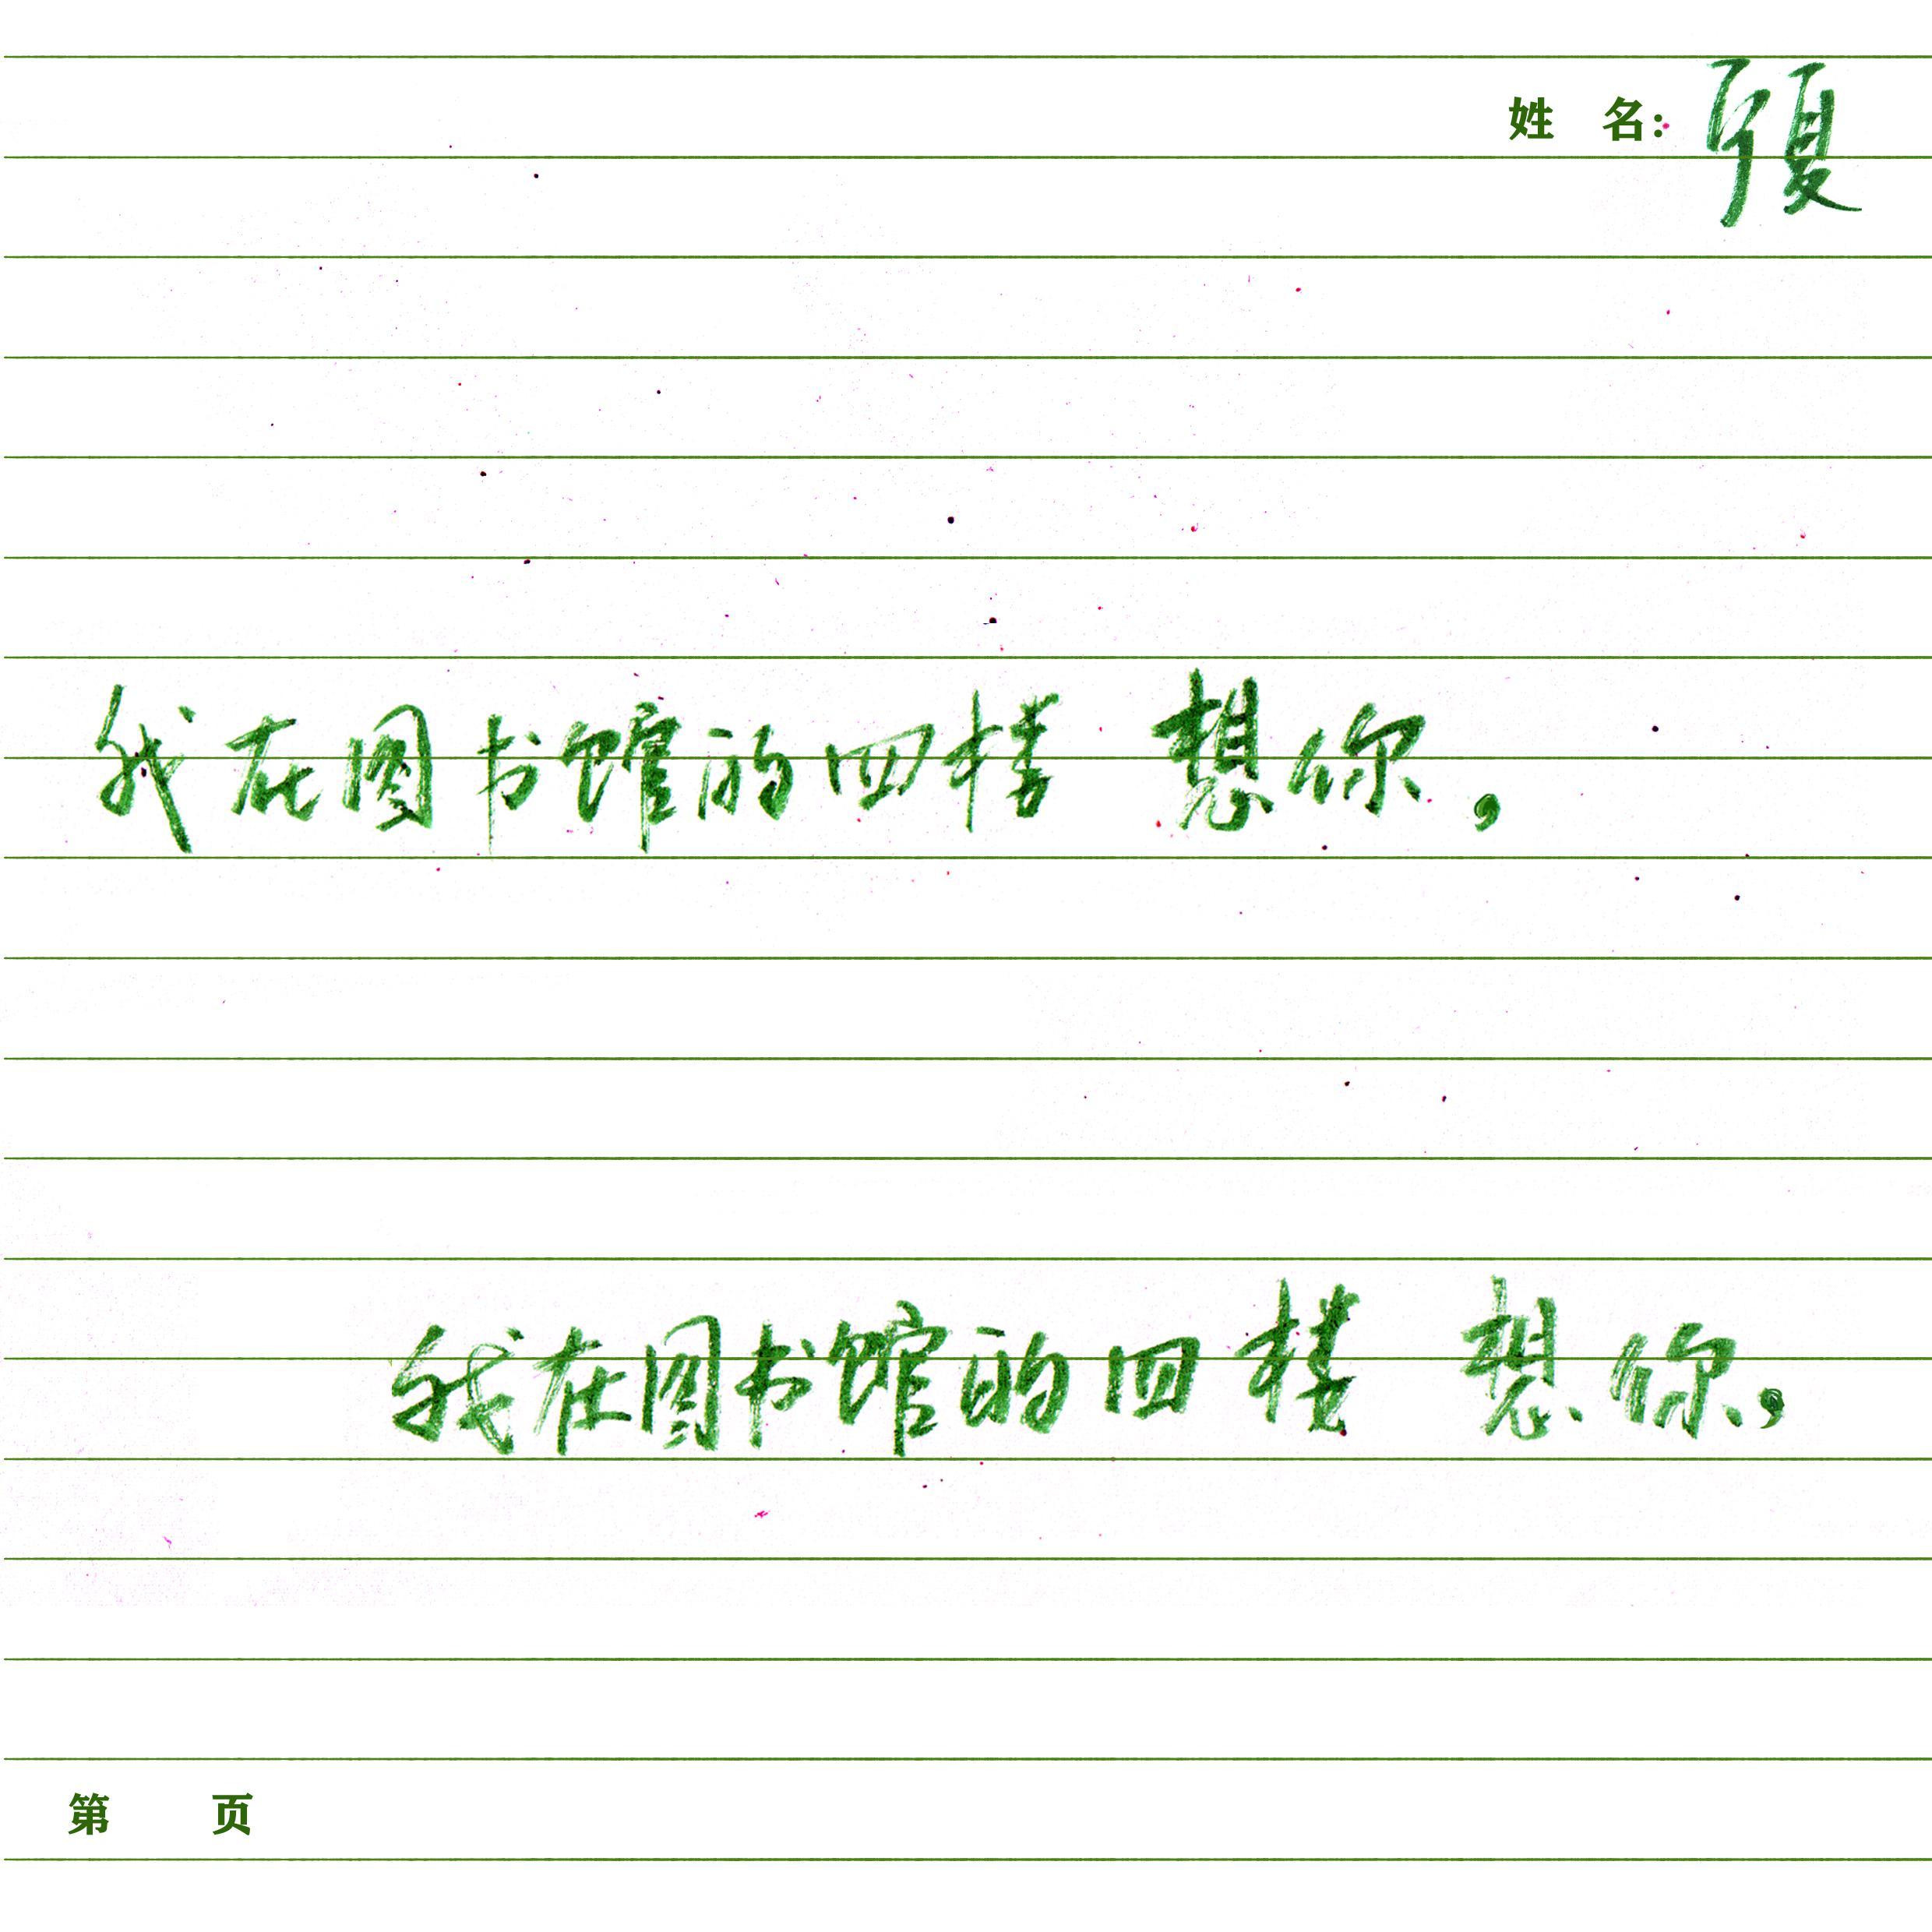 姓 名: 夏
我在图书馆的四楼 想你，
我在图书馆的四楼 想你，
第 页